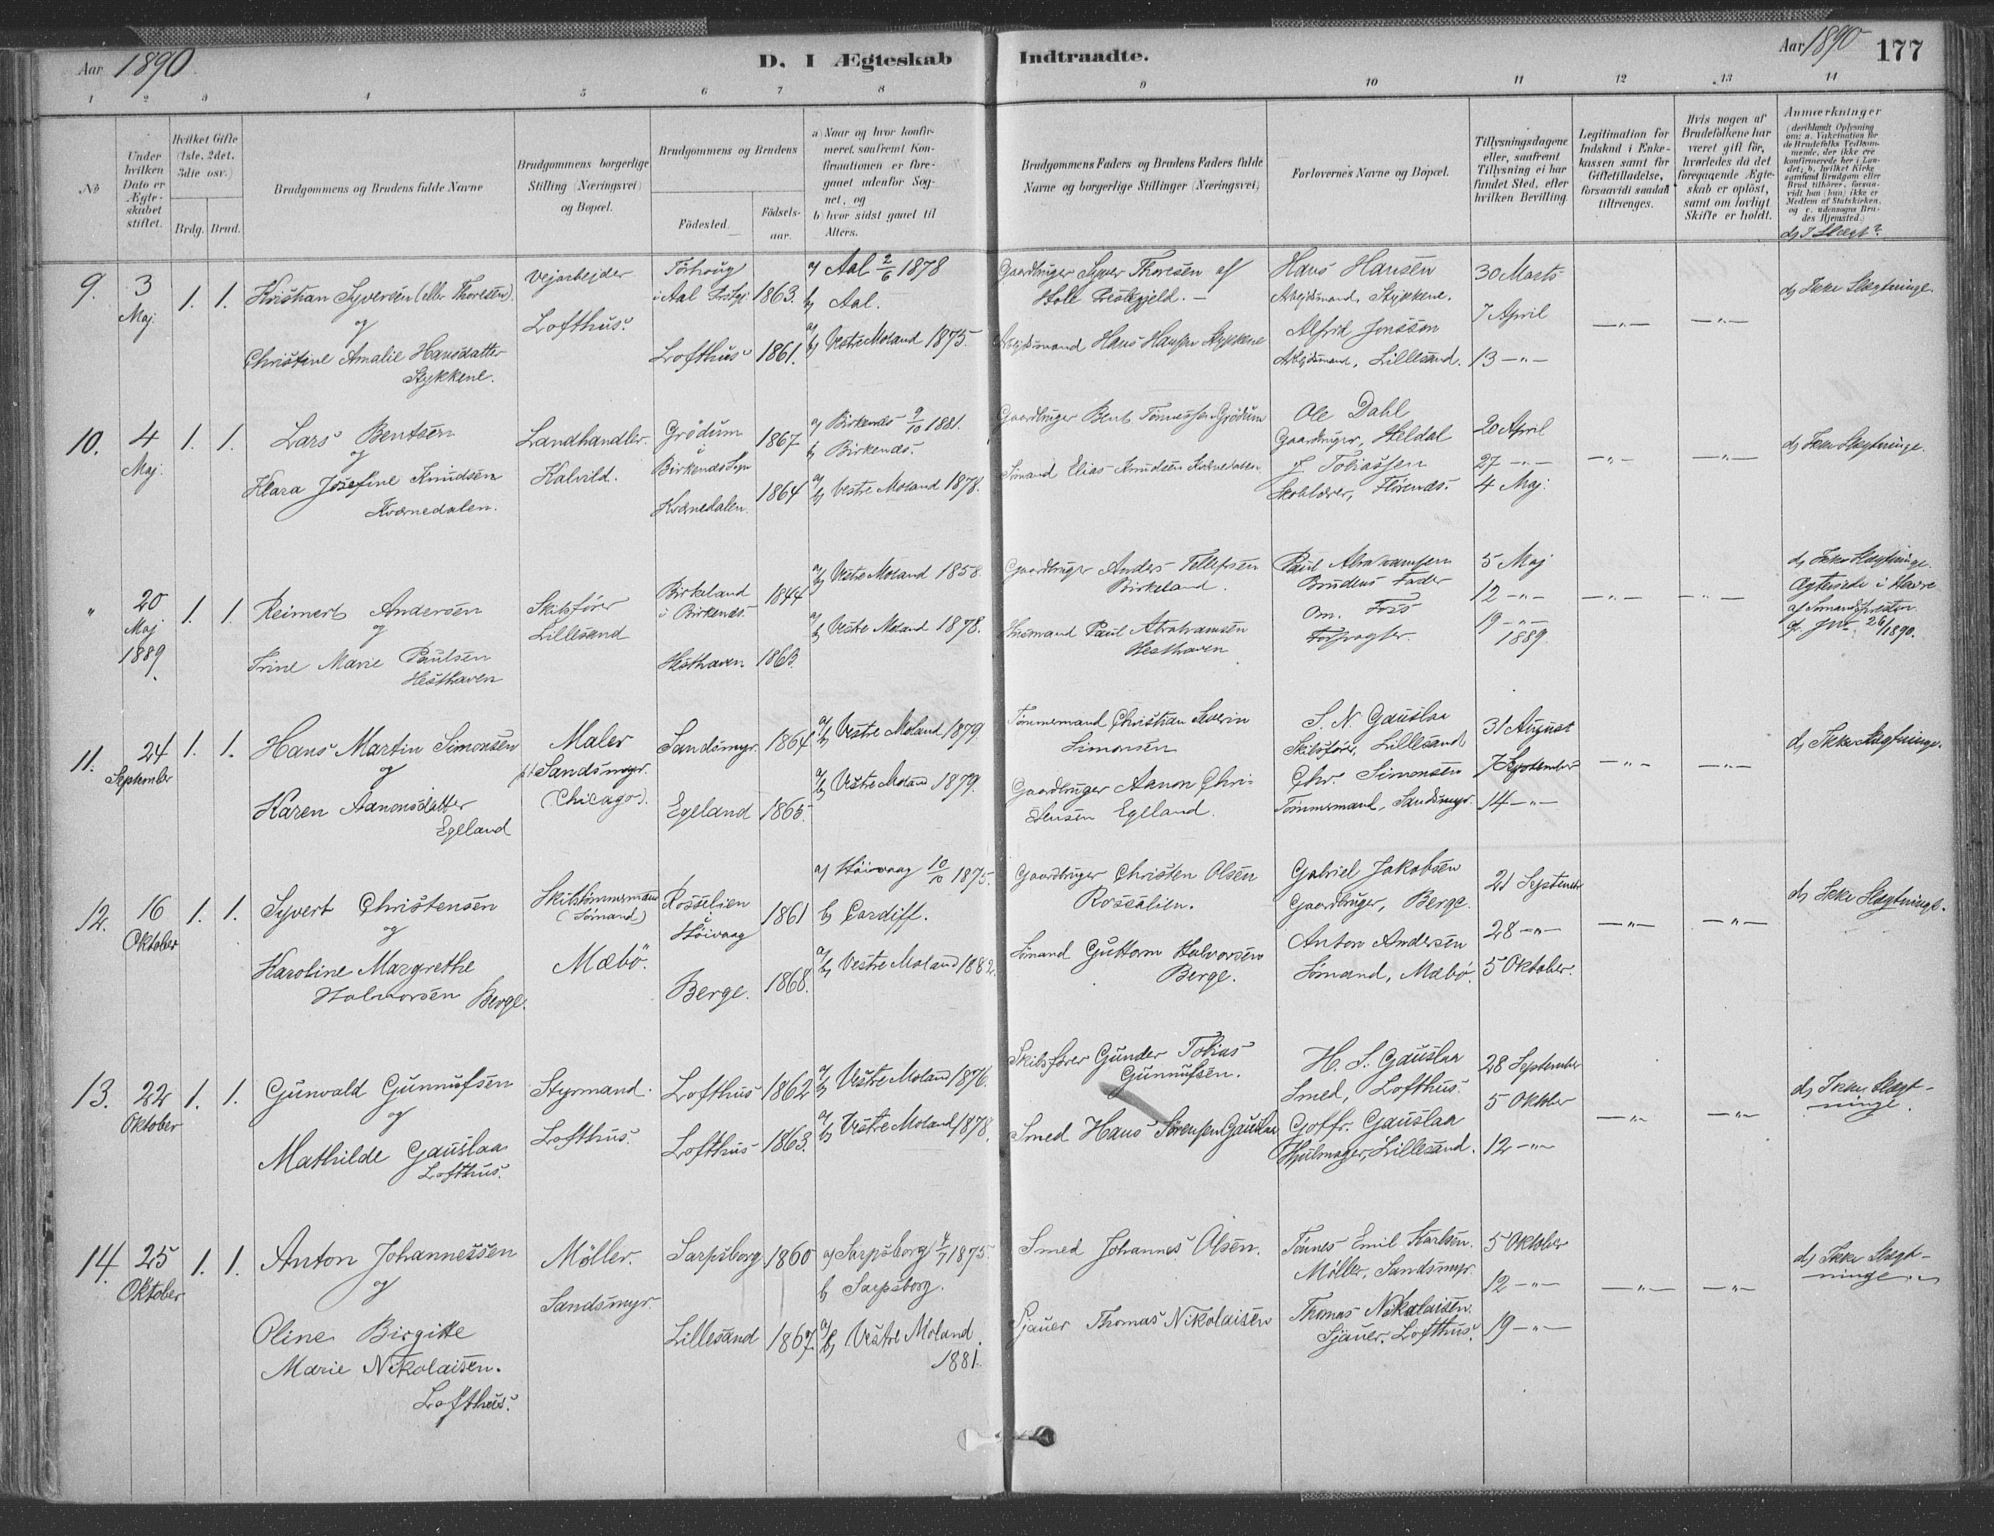 Aar 1890.
D. I Ægteskab Indtraadte.
Aar 1890 177
1 2 3 4 5 6 7 8 9 10 11 12 13 14
No
Under hvilken Dato er Ægteskabet stiftet.
Hvilket Gifte (1ste, 2det, 3die osv.)
Brdg. Brud.
Brudgommens og Brudens fulde Navne
Brudgommens borgerlige Stilling (Næringsvei) og Bopæl.
Brudgommens og Brudens
Fødested. Fødselsaar.
a) Naar og hvor konfirmeret, saafremt Konfirmationen er foregaaet udenfor Sognet, og
b) hvor sidst gaaet til Alters.
Brudgommens Faders og Brudens Faders fulde Navne og borgerlige Stillinger (Næringsvei)
Forlovernes Navne og Bopæl.
Tillysningsdagene eller, saafremt Tillysning ei har fundet Sted, efter hvilken Bevilling.
Legitimation for Indskud i Enkekassen samt for Giftetilladelse, forsaavidt saadan tiltrænges.
Hvis nogen af Brudefolkene har været gift før, hvorledes da det foregaaende Ægteskab er opløst, samt om lovligt Skifte er holdt.
Anmærkninger
(deriblandt Oplysning om: a. Vakcination for de Brudefolks Vedkommende, der ikke ere konfirmerede her i Landet; b. hvilket Kirkesamfund Brudgom eller Brud tilhører, forsaavidt han (hun) ikke er Medlem af Statskirken, og c. udensogns Brudes Hjemsted.)
d) I Slægt?
9. 3 Maj. 1. 1.
Kristian Syversen (eller Thoresen)
og
Christine Amalie Hansdatter
Stykkene.
Vejarbejder
Lofthus.
i Aal 1863.
Lofthus 1861.
a) Aal 2/6 1878
b) Aal.
a) b) Vestre Moland 1875.
Gaardbruger Syver Thoresen af
Hole Prestegjeld. —
Arbejdsmand Hans Hansen Stykkene
Hans Hansen
Arbejdsmand, Stykkene.
Alfrid Jonsson
Arbejdsmand, Lillesand.
30 Marts
7 April
13 —"—
—"—
—"—
d) Ikke Slægtninge.
10. 4 Maj. 1. 1.
Lars Bentsen
og
Klara Josefine Knudsen
Kvernedalen.
Landhandler.
Kalvild.
Grödum
i
Birkenes Sogn 1867
Kvernedalen. 1864
a) Birkenes 9/10 1881.
b) Birkenes.
a) b) Vestre Moland 1878.
Gaardbruger Bent Tönnessen Grödum
Sömand Elias Knudsen Kvernedalen
Ole Dahl
Gaardbruger, Heldal
J. Tobiassen
Skolelærer, Florenes.
20 April
27 —"—
4 Maj.
—"—
—"—
d) Ikke Slægtninge.
" 20 Maj. 1889. 1. 1.
Reimert Andersen
og
Trine Marie Paulsen
Hesthaven
Skibsfører
Lillesand
Birkeland
i Birkenes. 1844
Hesthaven 1863.
a) b) Vestre Moland 1858.
a) b) Vestre Moland 1878.
Gaardbruger Anders Tellefsen
Birkeland.
Husmand Paul Abrahamsen
Hesthaven
Paul Abrahamsen
Brudens Fader
Om. Foss
Forpagter.
5 Maj
12 —"—
19 —"—
1889.
—"—
—"—
d) Ikke Slægtninge.
Ægteviede i Havre
af Sømandspresten
1890.
11. 24 September 1. 1.
Hans Martin Simonsen
og
Karen Aanonsdatter
Egeland
Maler
Sandsmyr.
(Chicago).
Sandsmyr. 1864.
Egeland 1865.
a) b) Vestre Moland 1879.
a) b) Vestre Moland 1879.
Tømmermand Christian Severin
Simonsen
Gaardbruger Aanon Chri-
stensen Egeland.
S. N. Gauslaa
Skibsfører, Lillesand
Chr. Simonsen
Tømmermand, Sandsmyr.
31 August
7 September
14 —"—
—"—
—"—
d) Ikke Slægtninge.
12. 16 Oktober 1. 1.
Syvert Christensen
og
Karoline Margrethe
Halvorsen Berge.
Skibstømmermand
(Sømand)
Mæbö.
Rosselien
i
Höivaag 1861
Berge. 1868.
a) Höivaag 10/10 1875.
b) Cardiff.
a) b) Vestre Moland 1882.
Gaardbruger Christen Olsen
Rossalien.
Sömand Guttorm Halvorsen
Berge.
Gabriel Jakobsen
Gaardbruger, Berge.
Anton Andersen
Sømand, Mæbö.
21 September
28 —"—
5 Oktober.
—"—
—"—
d) Ikke Slægtninge.
13. 22 Oktober 1. 1.
Gunvald Gunnufsen
og
Mathilde Gauslaa
Lofthus.
Styrmand.
Lofthus.
Lofthus 1862
Lofthus 1863.
a) b) Vestre Moland 1876.
a) b) Vestre Moland 1878.
Skibsfører Gunder Tobias
Gunnufsen.
Smed Hans Sørensen Gauslaa
H. S. Gauslaa
Smed, Lofthus.
Goffr. Gauslaa
Hjulmager, Lillesand.
28 September
5 Oktober
12 —"—
—"—
—"—
d) Ikke Slægt-
ninge.
14. 25 Oktober 1. 1.
Anton Johannessen
og
Oline Birgitte
Marie Nikolaisen.
Lofthus.
Møller.
Sandsmyr.
Sarpsborg 1860
Lillesand 1867.
a) Sarpsborg 4/7 1875.
b) Sarpsborg.
a) b) Vestre Moland
1881.
Smed Johannes Olsen.
Sjauer Thomas Nikolaisen
Tönnes Emil Karlsen.
Møller, Sandsmyr.
Thomas Nikolaisen.
Sjauer. Lofthus.
5 Oktober
12 —"—
19 —"—
—"—
—"—
d) Ikke Slægt-
ninge.